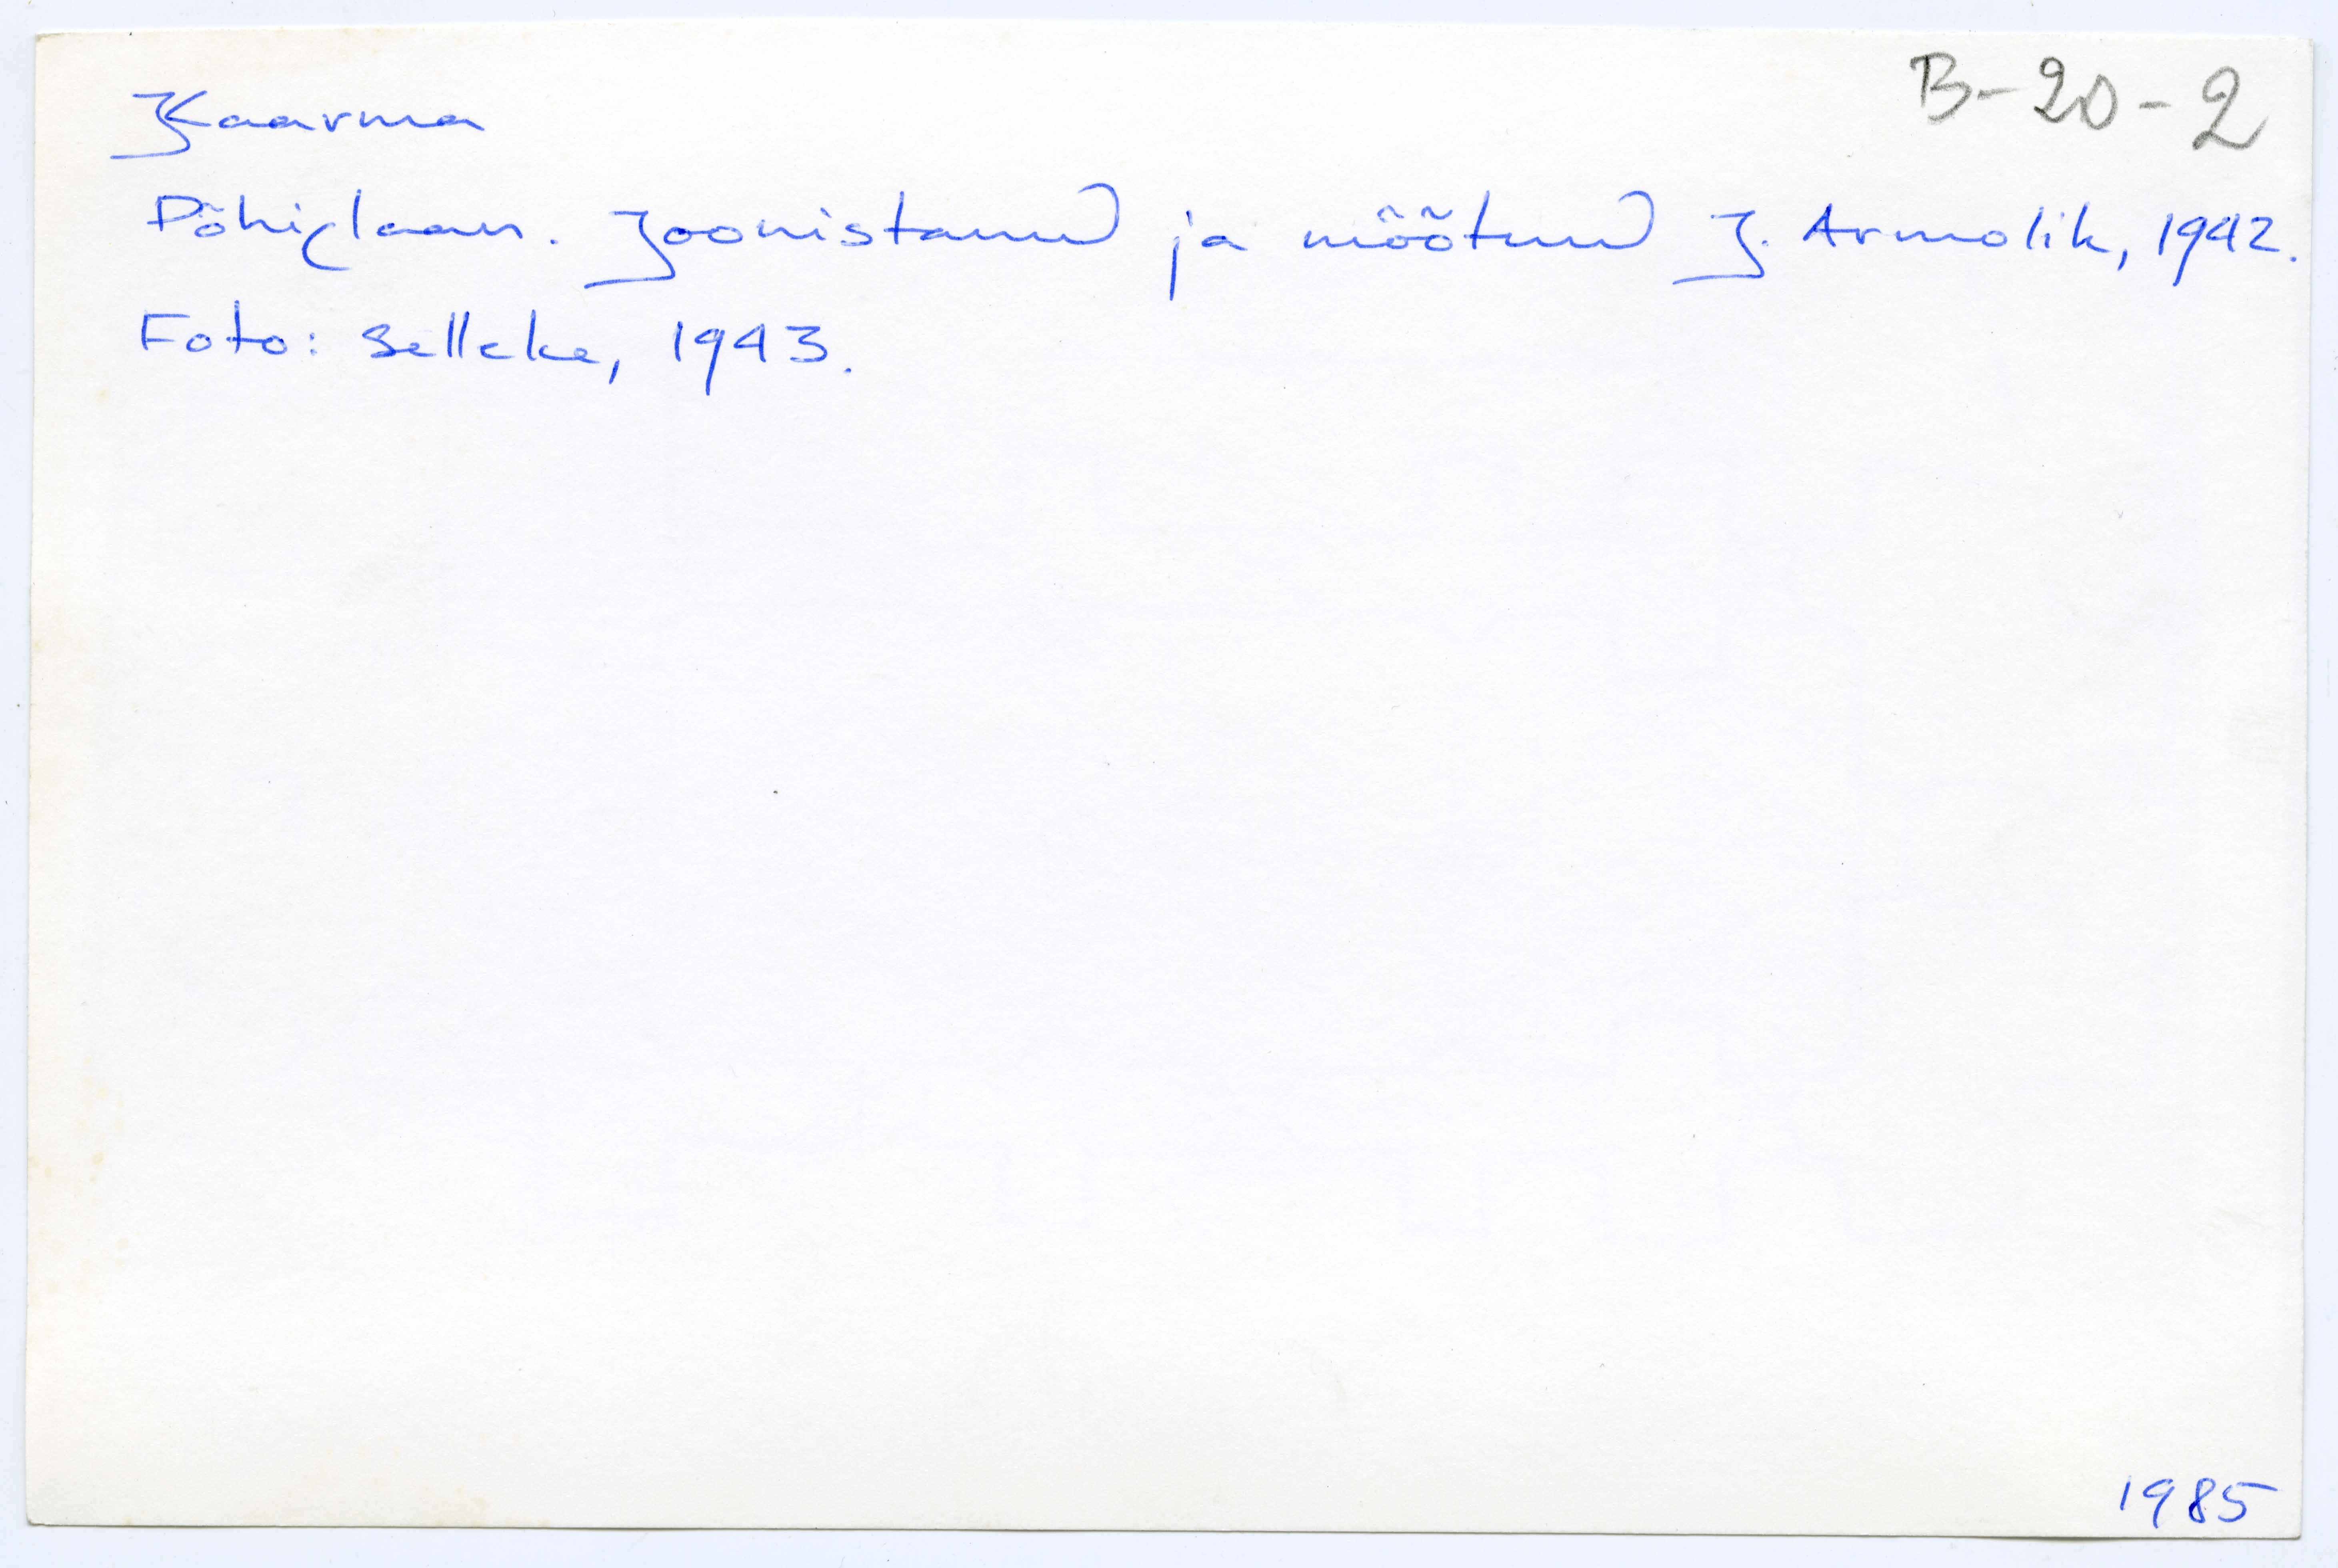 B-20-2
Kaarma
Põhiplaan. Joonistanud ja mõõtnud J. Armolik, 1942.
Foto: Selleke, 1943.
1985